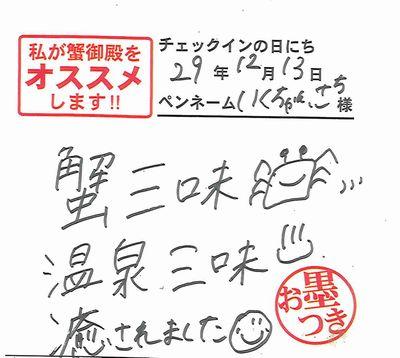 私が蟹御殿を
オススメ
します!!
チェックインの日にち
29年12月13日
ペンネーム 様
蟹三味
温泉三味
癒されました
お墨つき